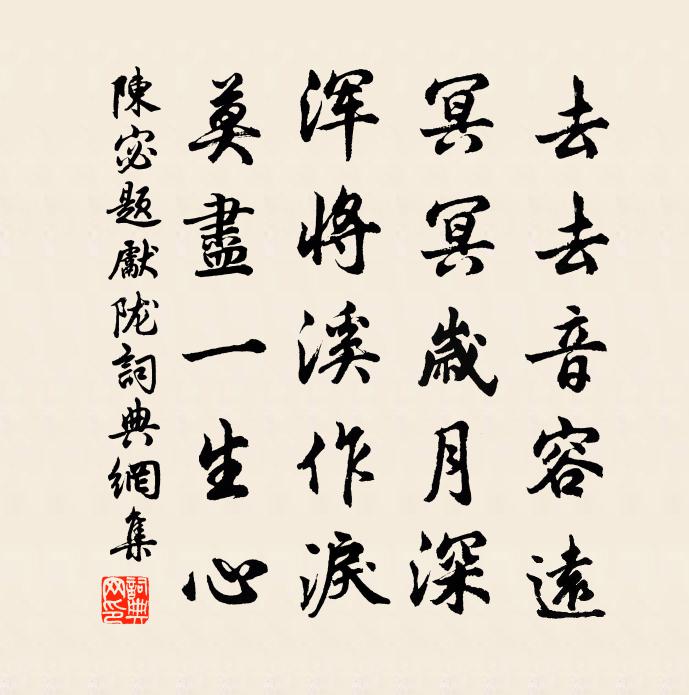 去去音容遠
冥冥歲月深
渾將溪作淚
莫盡一生心
陳宓題獻陇詞典網集
詞典網印